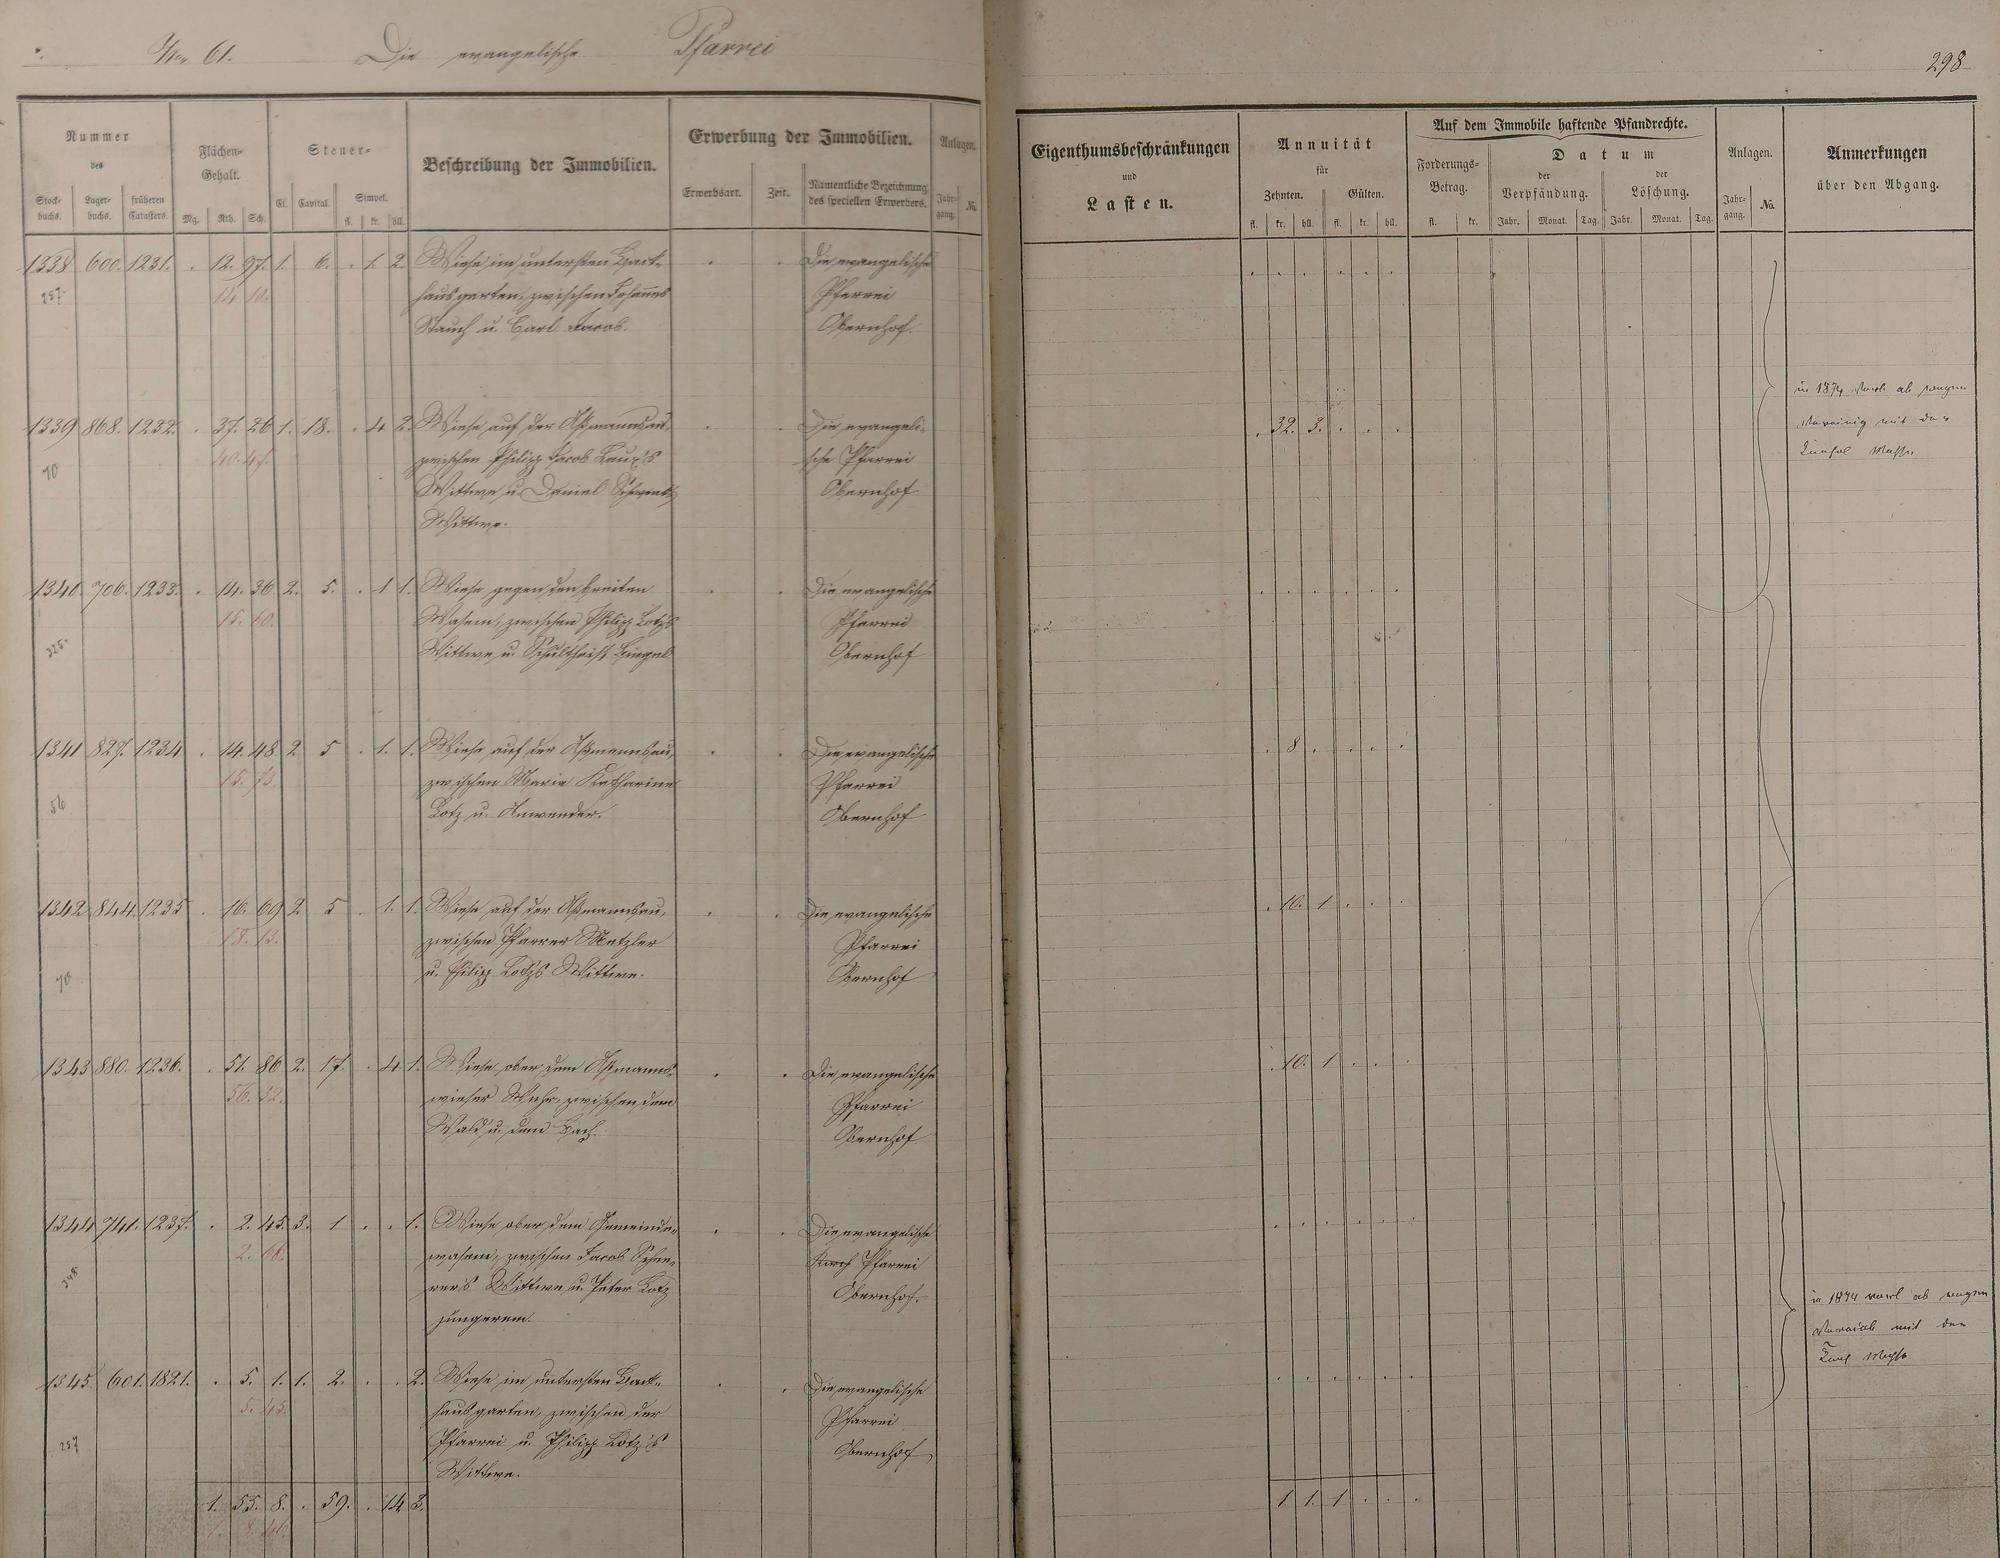 No 61. Die evangelische Pfarrei
298
Nummer
des
Stockbuchs. Lagerbuchs. früheren Catasters.
Flächen-
Gehalt.
Mg. Rth. Sch.
Steuer-
Cl. Capital. Simpel.
fl. kr. hll.
Beschreibung der Immobilien.
Erwerbung der Immobilien.
Erwerbsart. Zeit. Namentliche Bezeichnung
des speciellen Erwerbers.
Anlagen.
Jahrgang. №
Eigenthumsbeschränkungen
und
Lasten.
Annuität
für
Zehnten. Gülten.
fl. kr. hll. fl. kr. hll.
Auf dem Immobile haftende Pfandrechte.
Forderungs-
Betrag.
fl. kr.
Datum
der Verpfändung. der Löschung.
Jahr. Monat. Tag. Jahr. Monat. Tag.
Anlagen.
Jahrgang. №
Anmerkungen
über den Abgang.
1338 600. 1231. . 12. 97. 1. 6. . 1. 2. Wiese im untersten Hart- Die evangelische
257 14 10. hausgarten, zwischen Johannes Pfarrei
Stauch u. Carl Jacob. Obernhof.
in 1874 ab wegen
mit der
1339 868. 1232. . 37. 26 1. 18. . 4 2. Wiese auf der Aßmannsau, Die evangeli- . 32. 3. . . .
70 40. 47. zwischen Philipp Jacob Laux's sche Pfarrei
Wittwe u. Daniel Obernhof
Wittwe.
1340. 706. 1233. . 14. 36 2. 5. . 1 1. Wiese gegen den breiten Die evangelische
325. 15. 60. Wasem, zwischen Philipp Lotz's Pfarrei
Wittwe u. Schultheiß Obernhof
1341 827. 1234 . 14. 48 2 5 . 1. 1. Wiese auf der Aßmannsau, Die evangelische . 8 . . . .
56 15. 73. zwischen Maria Katharina Pfarrei
Lotz u. Anwender. Obernhof
1342 844. 1235 . 16. 69 2 5 . 1. 1. Wiese auf der Aßmannsau, Die evangelische . 10. 1 . . .
70 18. 13. zwischen Pfarrer Metzler Pfarrei
u. Philipp Lotz's Wittwe. Obernhof
1343 880. 1236. . 51. 86 2. 17. . 4 1. Wiese ober dem Aßmanns- Die evangelische . 10. 1 . . .
56. 32. wieser Wehr, zwischen dem Pfarrei
Wald u. dem Bach. Obernhof
1344 741. 1237. . 2. 45 3. 1 . . 1. Wiese ober dem Gemeinde- Die evangelische
348 2. 66. wasem, zwischen Jacob Scheu- Pfarrei
rer's Wittwe u. Peter Lotz Obernhof.
jüngerem.
in 1874 ab wegen
mit der
1345. 601. 1821. . 5. 1. 1. 2. . . 2. Wiese im untersten Hart- Die evangelische
257 5. 45. hausgarten, zwischen der Pfarrei
Pfarrei u. Philipp Lotz's Obernhof
Wittwe.
1. 55. 8. . 59. . 14 3. 1. 1. 1 . . .